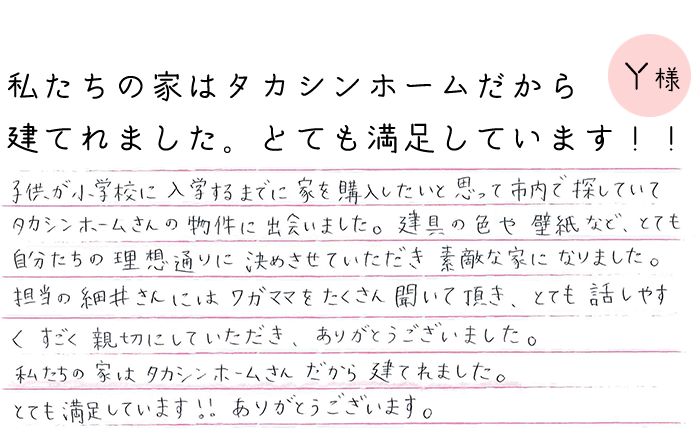 Y様
私たちの家はタカシンホームだから
建てれました。とても満足しています!!
子供が小学校に入学するまでに家を購入したいと思って市内で探していて
タカシンホームさんの物件に出会いました。建具の色や壁紙など、とても
自分たちの理想通りに決めさせていただき素敵な家になりました。
担当の細井さんにはワガママをたくさん聞いて頂き、とても話しやす
くすごく親切にしていただき、ありがとうございました。
私たちの家はタカシンホームさんだから建てれました。
とても満足しています!!ありがとうございます。